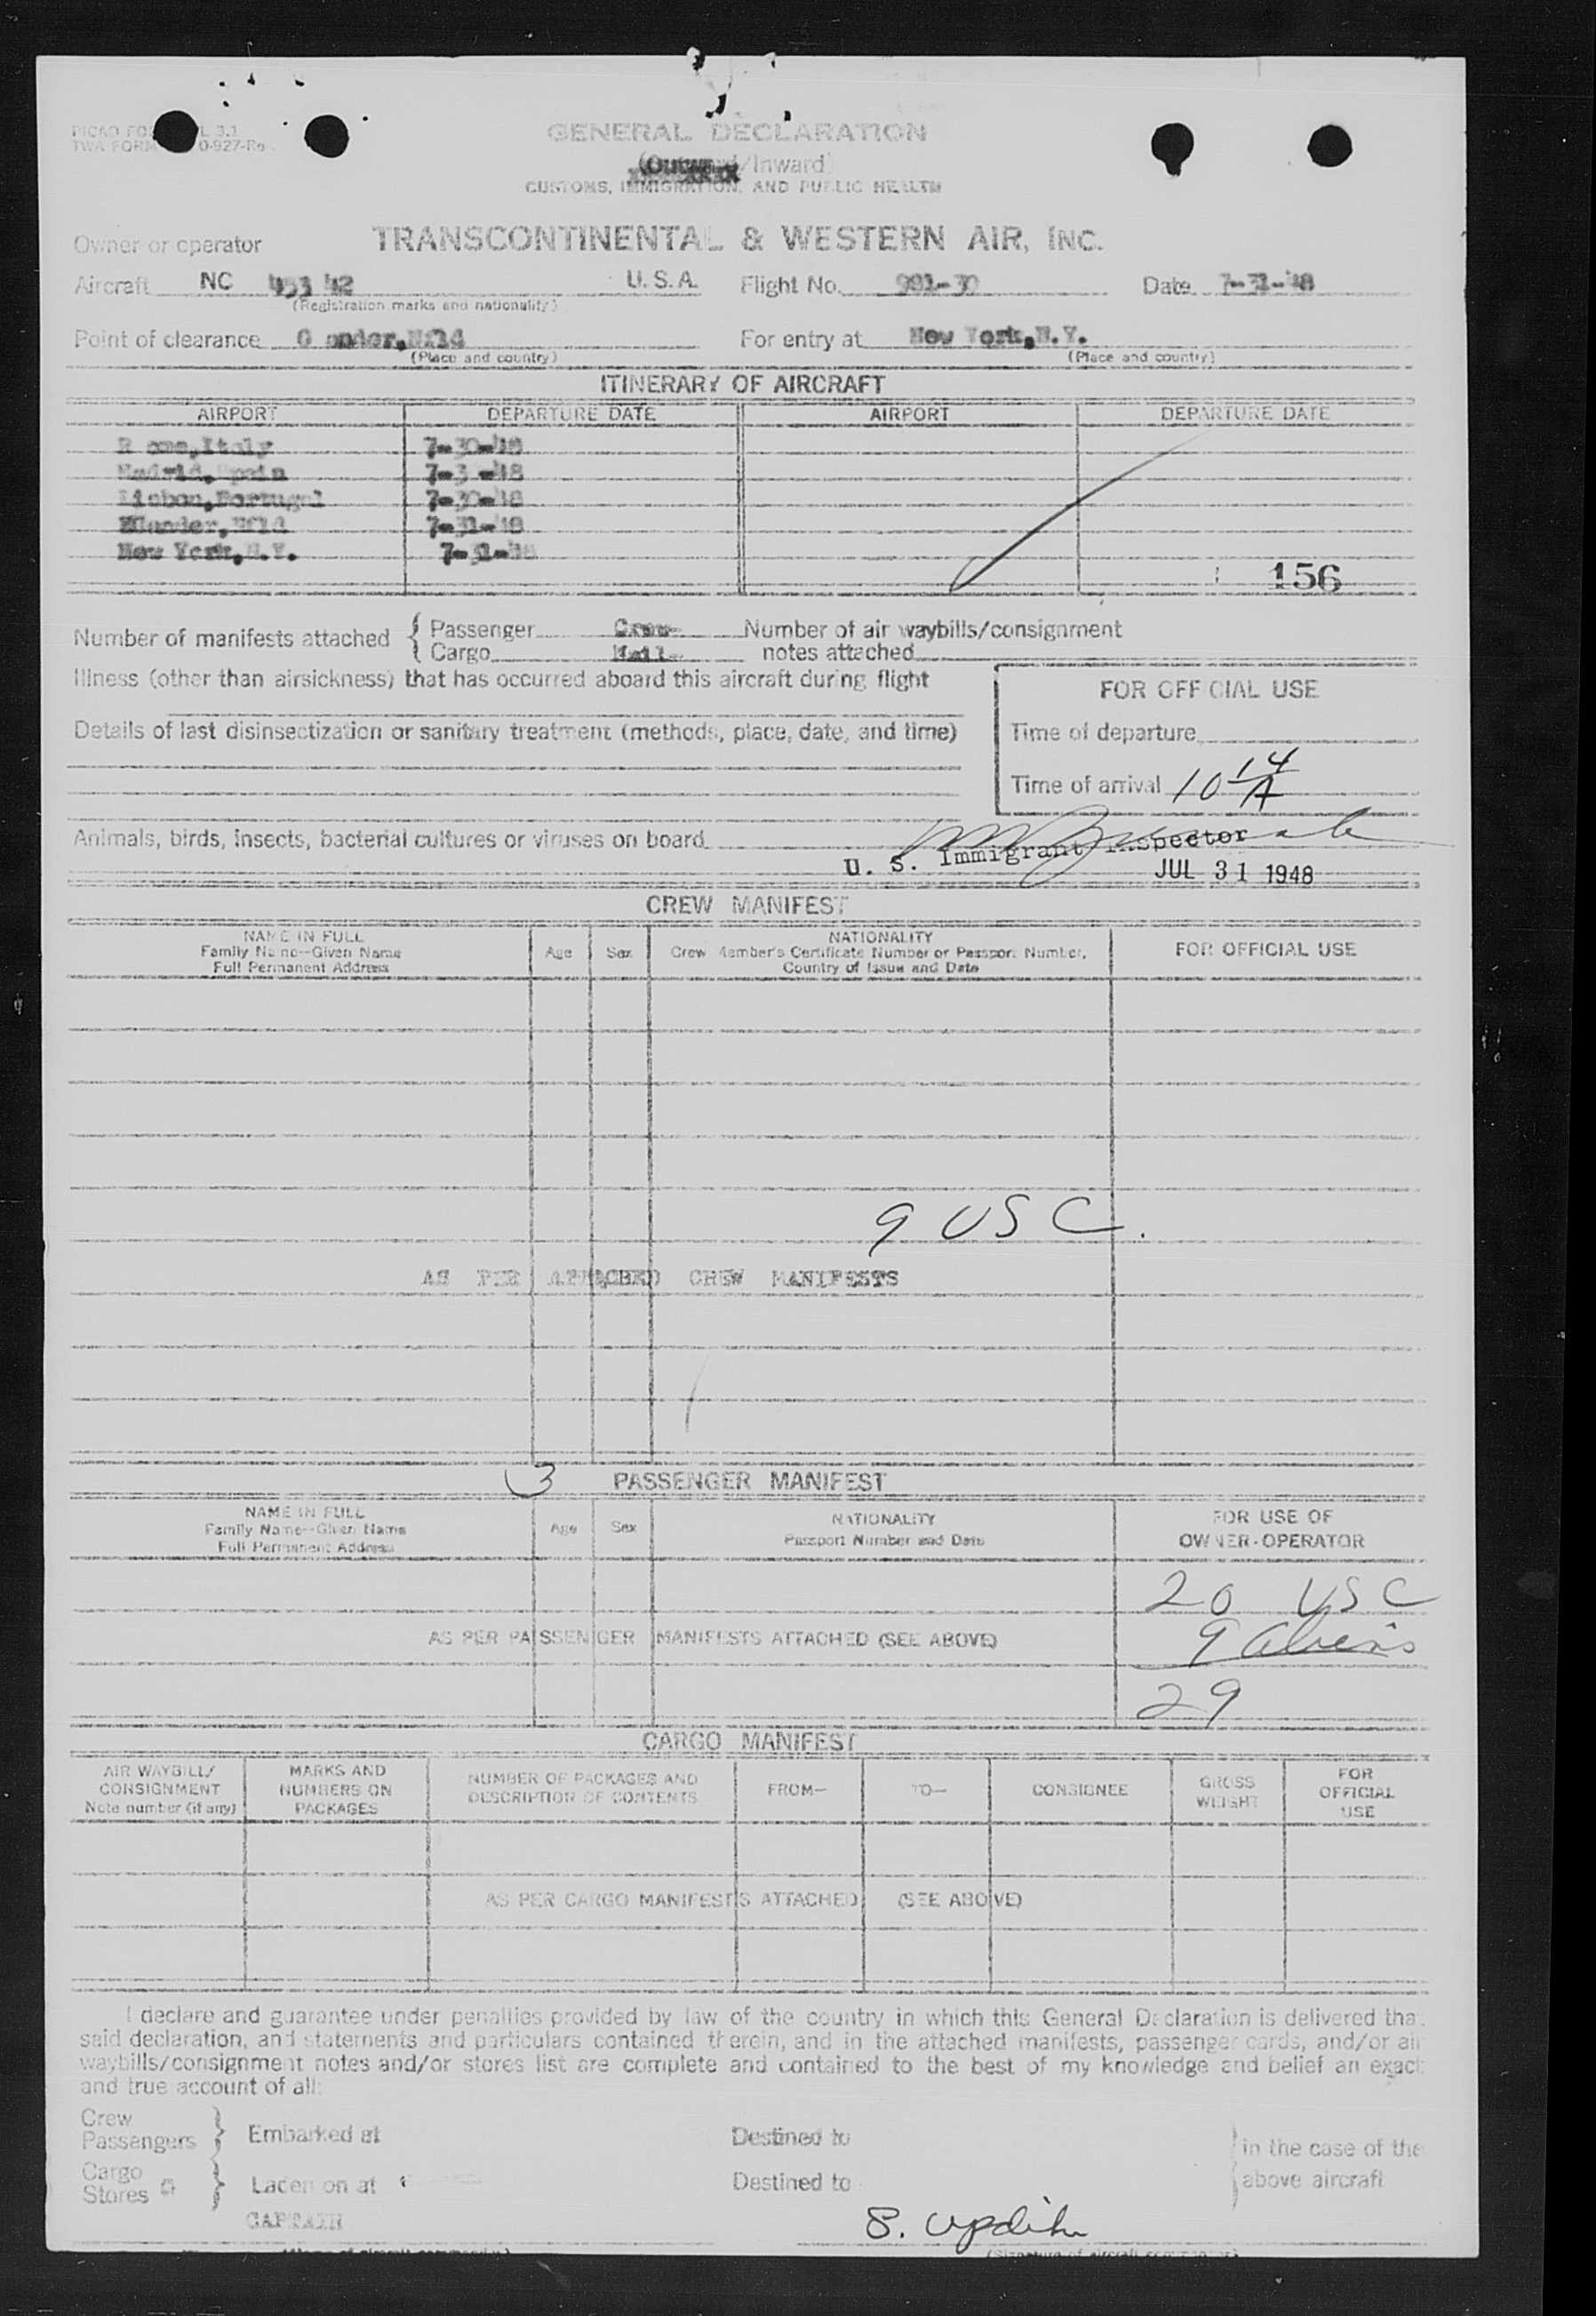 GENERAL DECLARATION
(Outward/Inward)
CUSTOMS, IMMIGRATION, AND PUBLIC HEALTH
Owner or operator TRANSCONTINENTAL & WESTERN AIR, INC.
Aircraft NC 45342 U.S.A. Flight No. 991-30 Date 7-31-48
(Registration marks and nationality)
Point of clearance G ander,Nfld For entry at New York,N.Y.
(Place and country) (Place and country)
ITINERARY OF AIRCRAFT
AIRPORT DEPARTURE DATE AIRPORT DEPARTURE DATE
R ome,Italy 7-30-48
Madrid, Spain 7-3 -48
Lisbon,Portugal 7-30-48
Nfld 7-31-48
New York,N.Y. 7-31-48
156
Number of manifests attached { Passenger Crew Number of air waybills/consignment
Cargo Mail notes attached
Illness (other than airsickness) that has occurred aboard this aircraft during flight
FOR OFFICIAL USE
Details of last disinsectization or sanitary treatment (methods, place, date, and time)
Time of departure
Time of arrival 10 14 A
Animals, birds, insects, bacterial cultures or viruses on board
U. S. Immigrant Inspector
JUL 31 1948
CREW MANIFEST
NAME IN FULL
Family Name--Given Name
Full Permanent Address
Age Sex
NATIONALITY
Crew Member's Certificate Number or Passport Number,
Country of Issue and Date
FOR OFFICIAL USE
9 USC.
AS PER ATTACHED CREW MANIFESTS
3
PASSENGER MANIFEST
NAME IN FULL
Family Name--Given Name
Full Permanent Address
Age Sex
NATIONALITY
Passport Number and Date
FOR USE OF
OWNER-OPERATOR
20 USC
AS PER PASSENGER MANIFESTS ATTACHED (SEE ABOVE)
9 Aliens
29
CARGO MANIFEST
AIR WAYBILL/
CONSIGNMENT
Note number (if any)
MARKS AND
NUMBERS ON
PACKAGES
NUMBER OF PACKAGES AND
DESCRIPTION OF CONTENTS
FROM— TO— CONSIGNEE
GROSS
WEIGHT
FOR
OFFICIAL
USE
AS PER CARGO MANIFESTS ATTACHED (SEE ABOVE)
I declare and guarantee under penalties provided by law of the country in which this General Declaration is delivered that
said declaration, and statements and particulars contained therein, and in the attached manifests, passenger cards, and/or air
waybills/consignment notes and/or stores list are complete and contained to the best of my knowledge and belief an exact
and true account of all:
Crew
Passengers } Embarked at Destined to } in the case of the
Cargo
Stores } Laden on at Destined to above aircraft
CAPTAIN
S. Updike
(Signature of aircraft commander)